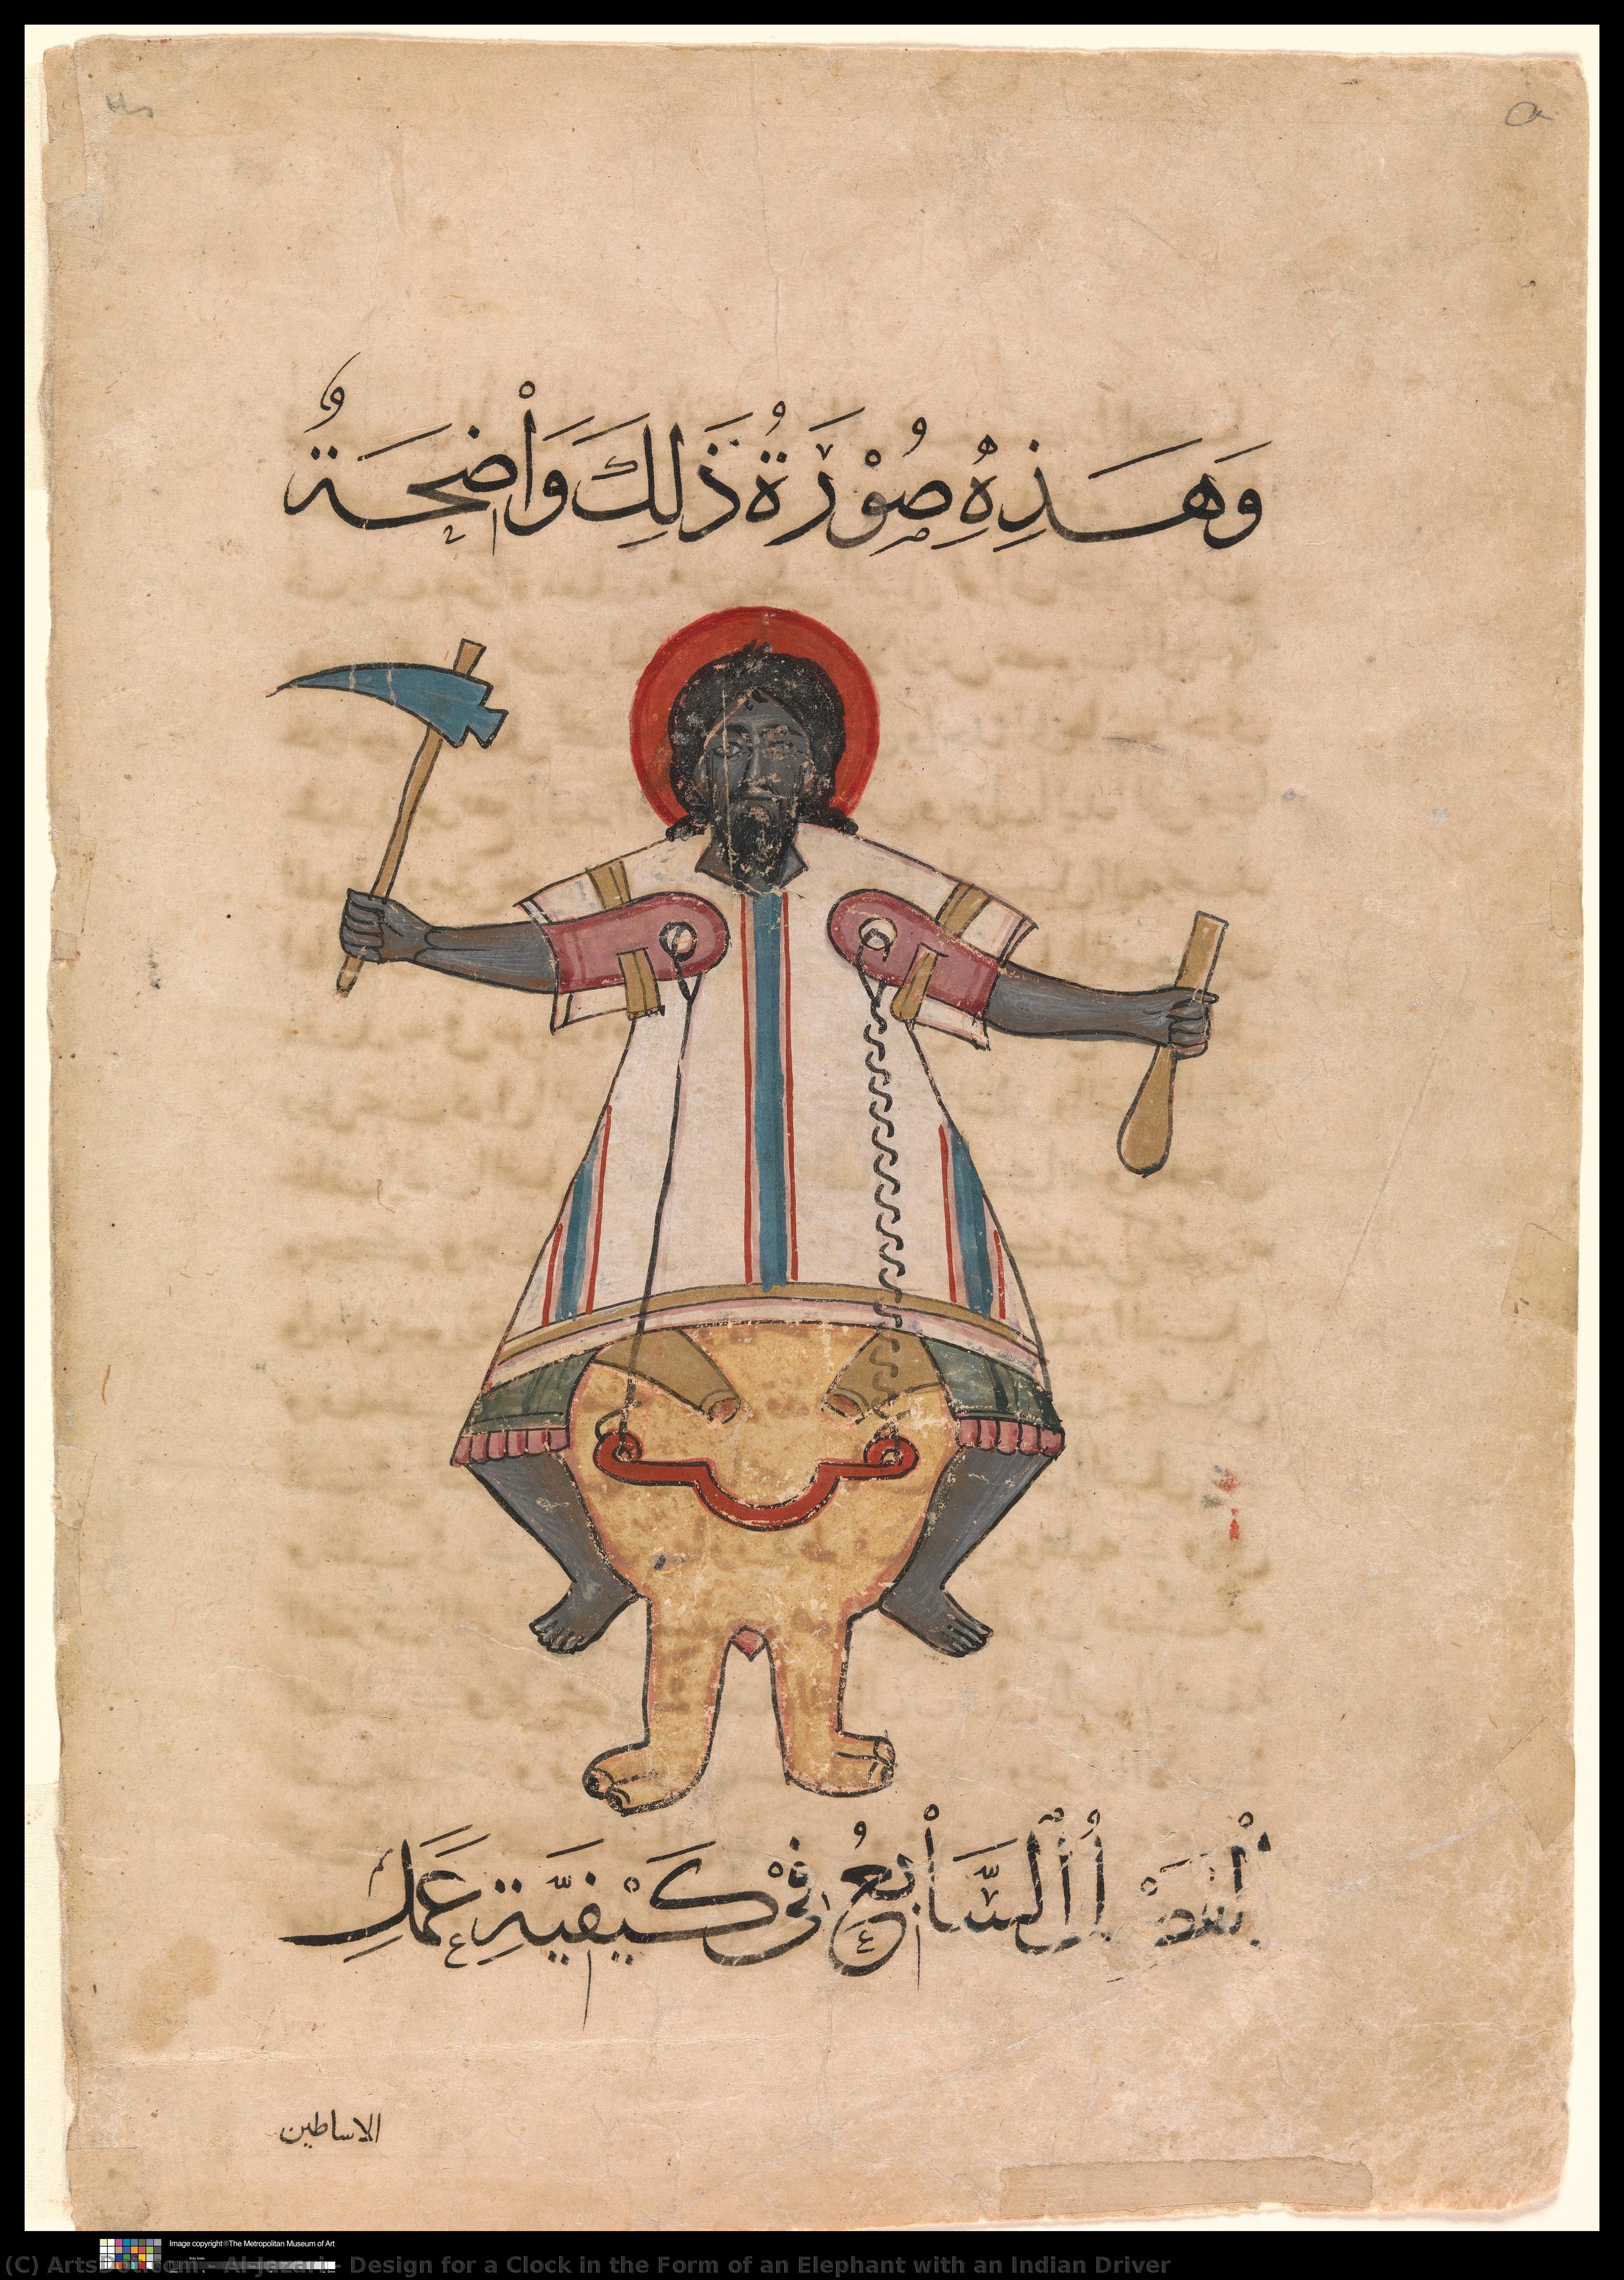 وَهَذِهِ صُوْرَةُ ذَلِكَ وَاْضِحَةٌ
اَلسَّاْبِعُ فِيْ كَيْفِيَّةِ عَمَلِ
الاساطين
Image copyright©The Metropolitan Museum of Art
(C) ArtsDot.com - Al-Jazari - Design for a Clock in the Form of an Elephant with an Indian Driver